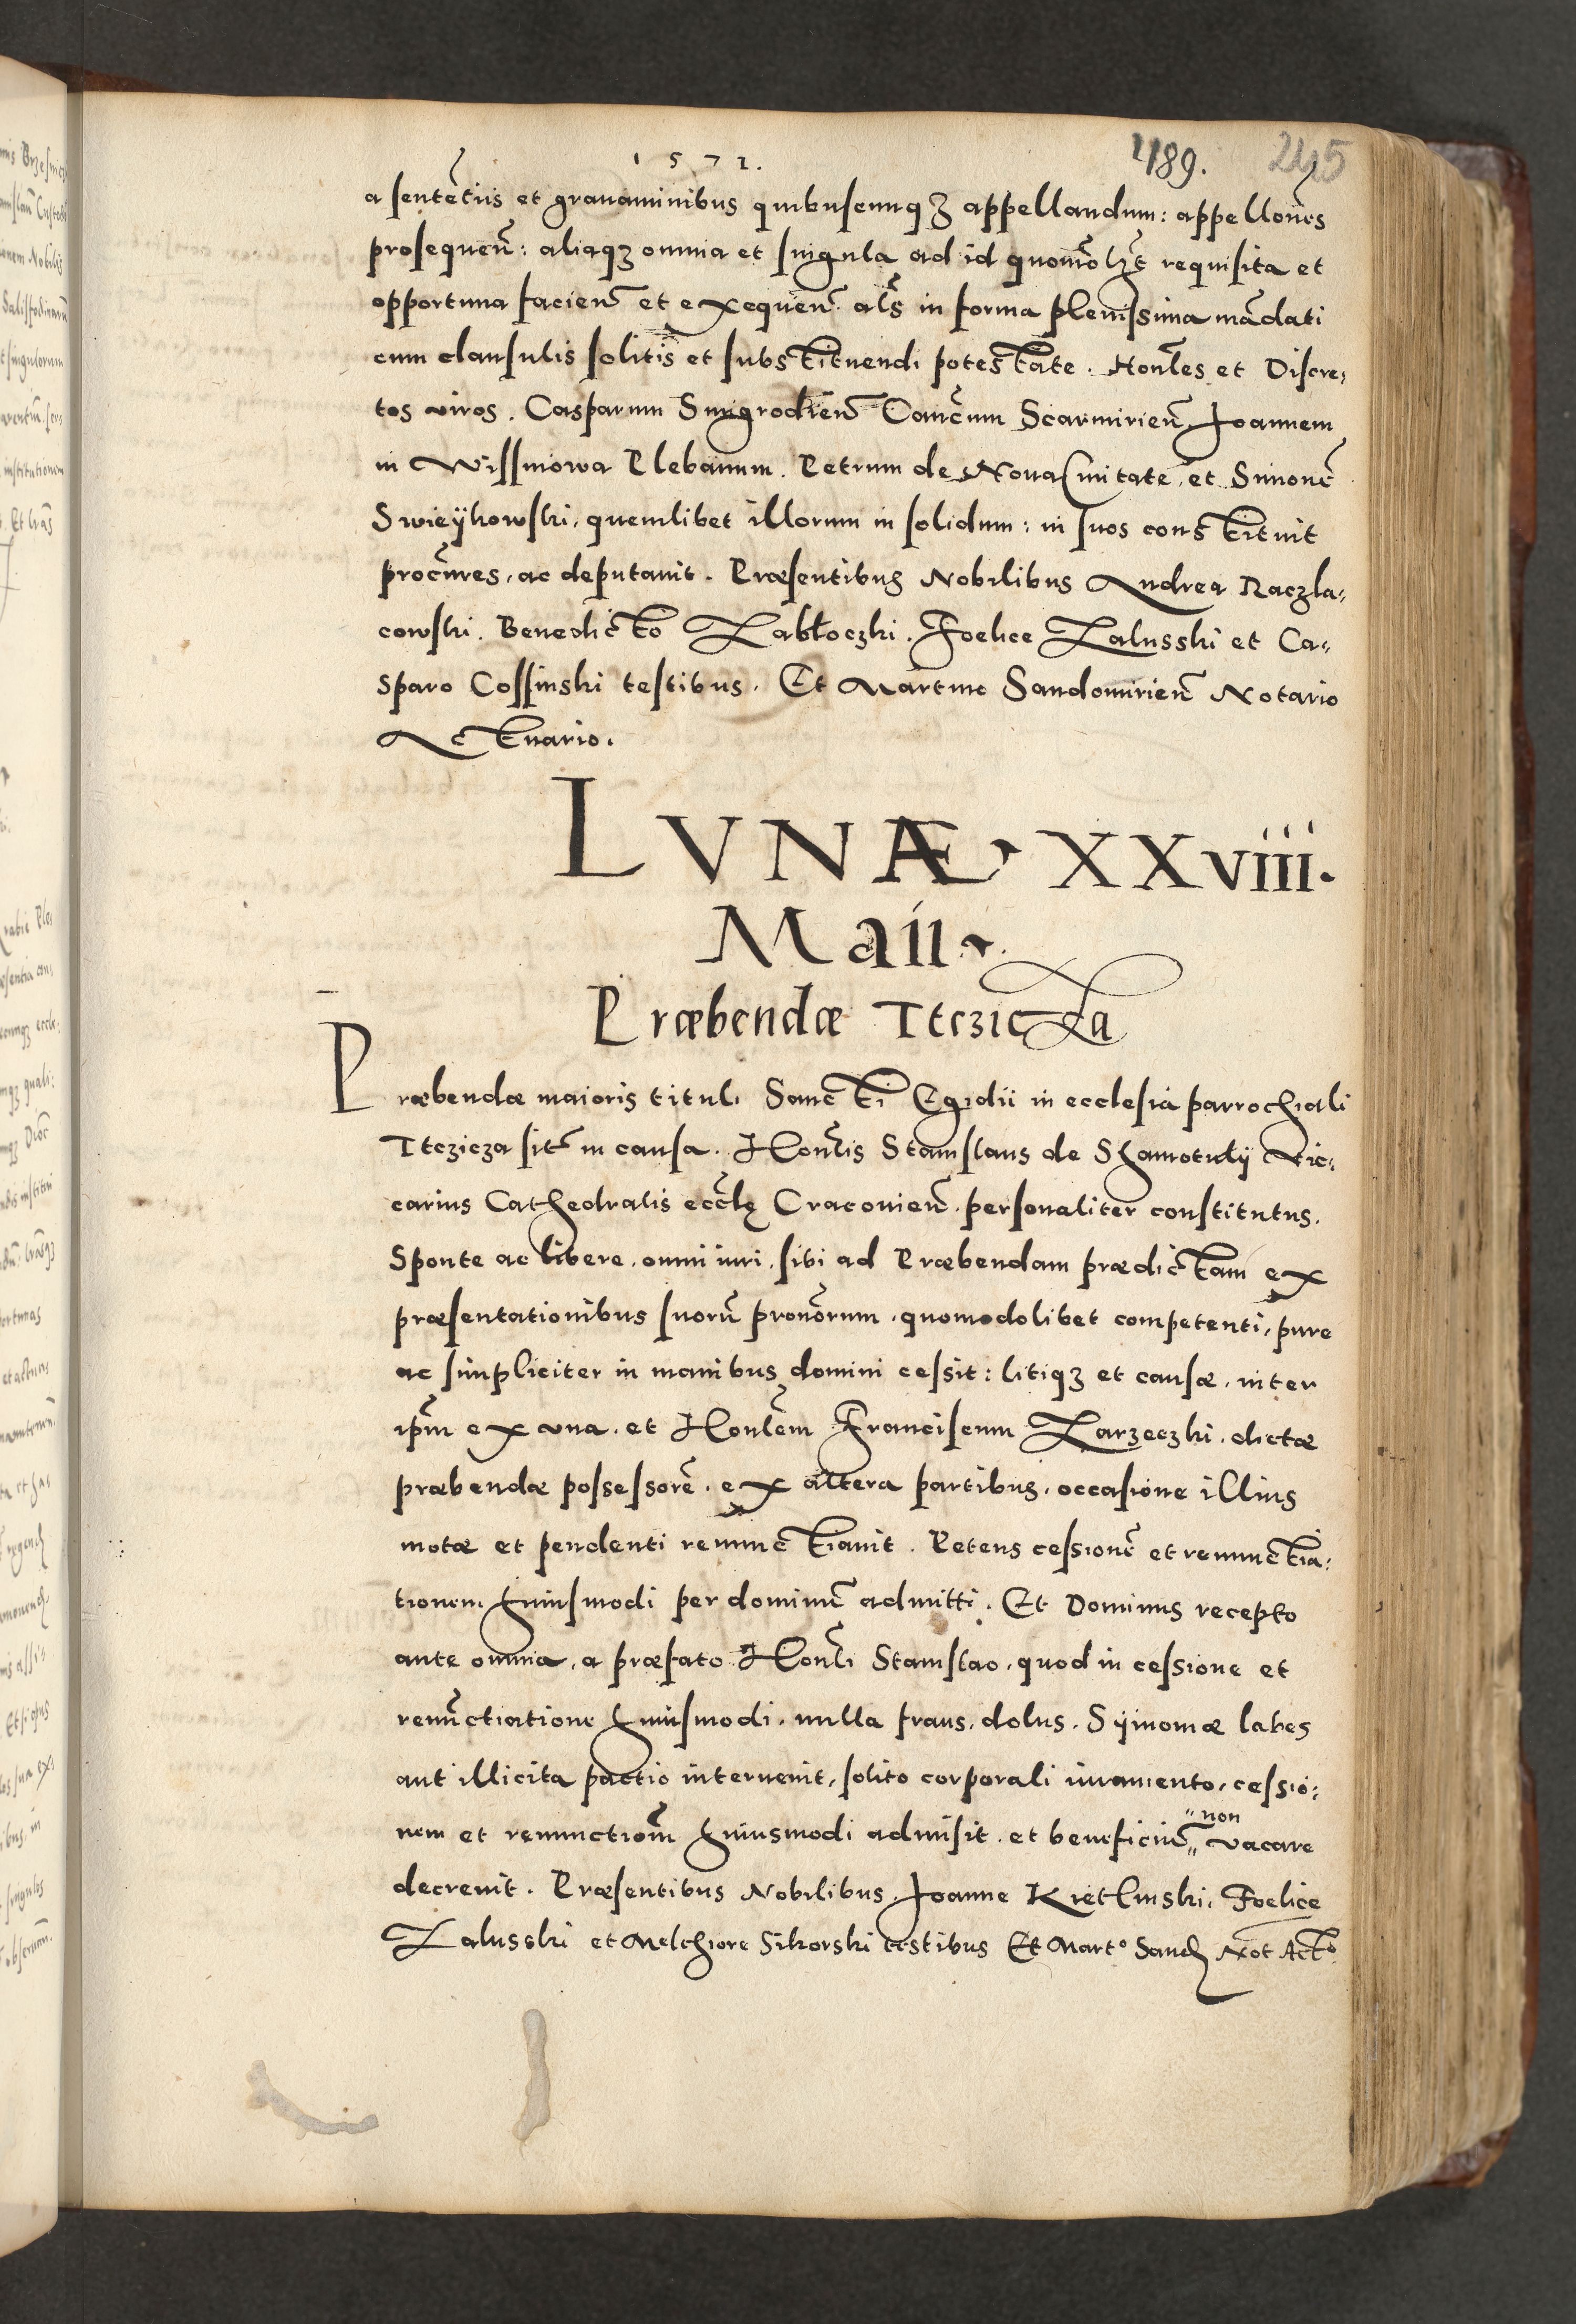 1571.
489. 245
a sentẽtiis et grauaminibus quibuscunqȝ appellandum: appellões
prosequeñ: aliaqȝ omnia et singula ad id quomõlꝫt requisita et
opportuna facieñ et exequeñ. als̃ in forma plenissima mãdati
cum clausulis solitis et substituendi potestate. Honles et Discre,
tos viros. Casparum Smigrodieñ Cancum Scarmirieñ, Joannem
in Wissmowa Plebanum. Petrum de Noua Ciuitate, et Simonẽ
Swieÿkowski, quemlibet illorum in solidum: in suos constituit
procũres, ac deputauit. Præsentibus Nobilibus Andrea Raczla,
cowski. Benedicto Zabłoczki. Foelice Zalusski et Ca,
sparo Cossinski testibus. Et Martino Sandomirieñ Notario
Actuario.
LVNÆ XXviiii.
Maii.
Præbendæ Tteziczа
Præbendæ maioris tituli Sancti Egidii in ecclesia parrochiali
Ttczicza sitẽ in causa. Honlis Stanislaus de Shamotulÿ Vic,
carius Cathedralis ecclę Cracouieñ. personaliter constitutus.
Sponte ac libere, omni iuri, sibi ad Præbendam prædictam ex
præsentationibus suorũ pronõrum, quomodolibet competenti, pure
ac simpliciter in manibus domini cessit: litiqȝ et causæ, inter
ipm̃ ex vna, et Honlem Franciscum Zarzeczki, dictæ
præbendæ possessorẽ, ex altera partibus, occasione illius
motæ et pendenti renunctiauit. Petens cessionẽ et renunctia,
tionem huiusmodi per dominũ admitti. Et Dominus recepto
ante omnia, a præfato Honli Stanislao, quod in cessione et
renũctiatione huiusmodi, nulla fraus, dolus, Sÿmoniæ labes
aut illicita pactio interuenit, solito corporali iuramento, cessio,
nem et renunctiom̃ huiusmodi admisit, et beneficiũ „ non vacare
decreuit. Præsentibus Nobilibus, Joanne Kietlinski, Foelice
Zalusski et Melchiore Sikorski testibus Et Marto Sand Not Acto